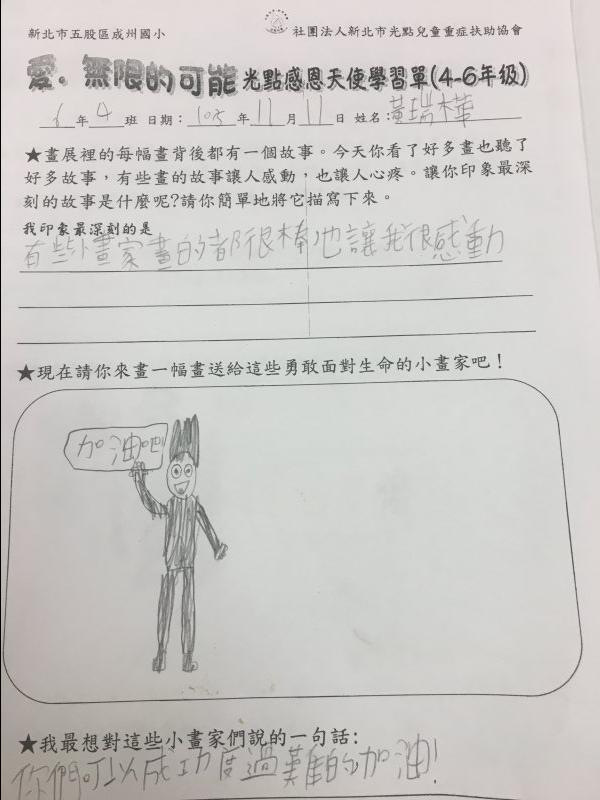 新北市五股區成州國小 社團法人新北市光點兒童重症扶助協會
愛。無限的可能 光點感恩天使學習單(4-6年級)
6年4班 日期：105年11月11日 姓名：黃瑞樺
★畫展裡的每幅畫背後都有一個故事。今天你看了好多畫也聽了
好多故事，有些畫的故事讓人感動，也讓人心疼。讓你印象最深
刻的故事是什麼呢?請你簡單地將它描寫下來。
我印象最深刻的是
有些小畫家畫的都很棒也讓我很感動
★現在請你來畫一幅畫送給這些勇敢面對生命的小畫家吧！
加油吧!
★我最想對這些小畫家們說的一句話：
你們可以成功度過難的加油!